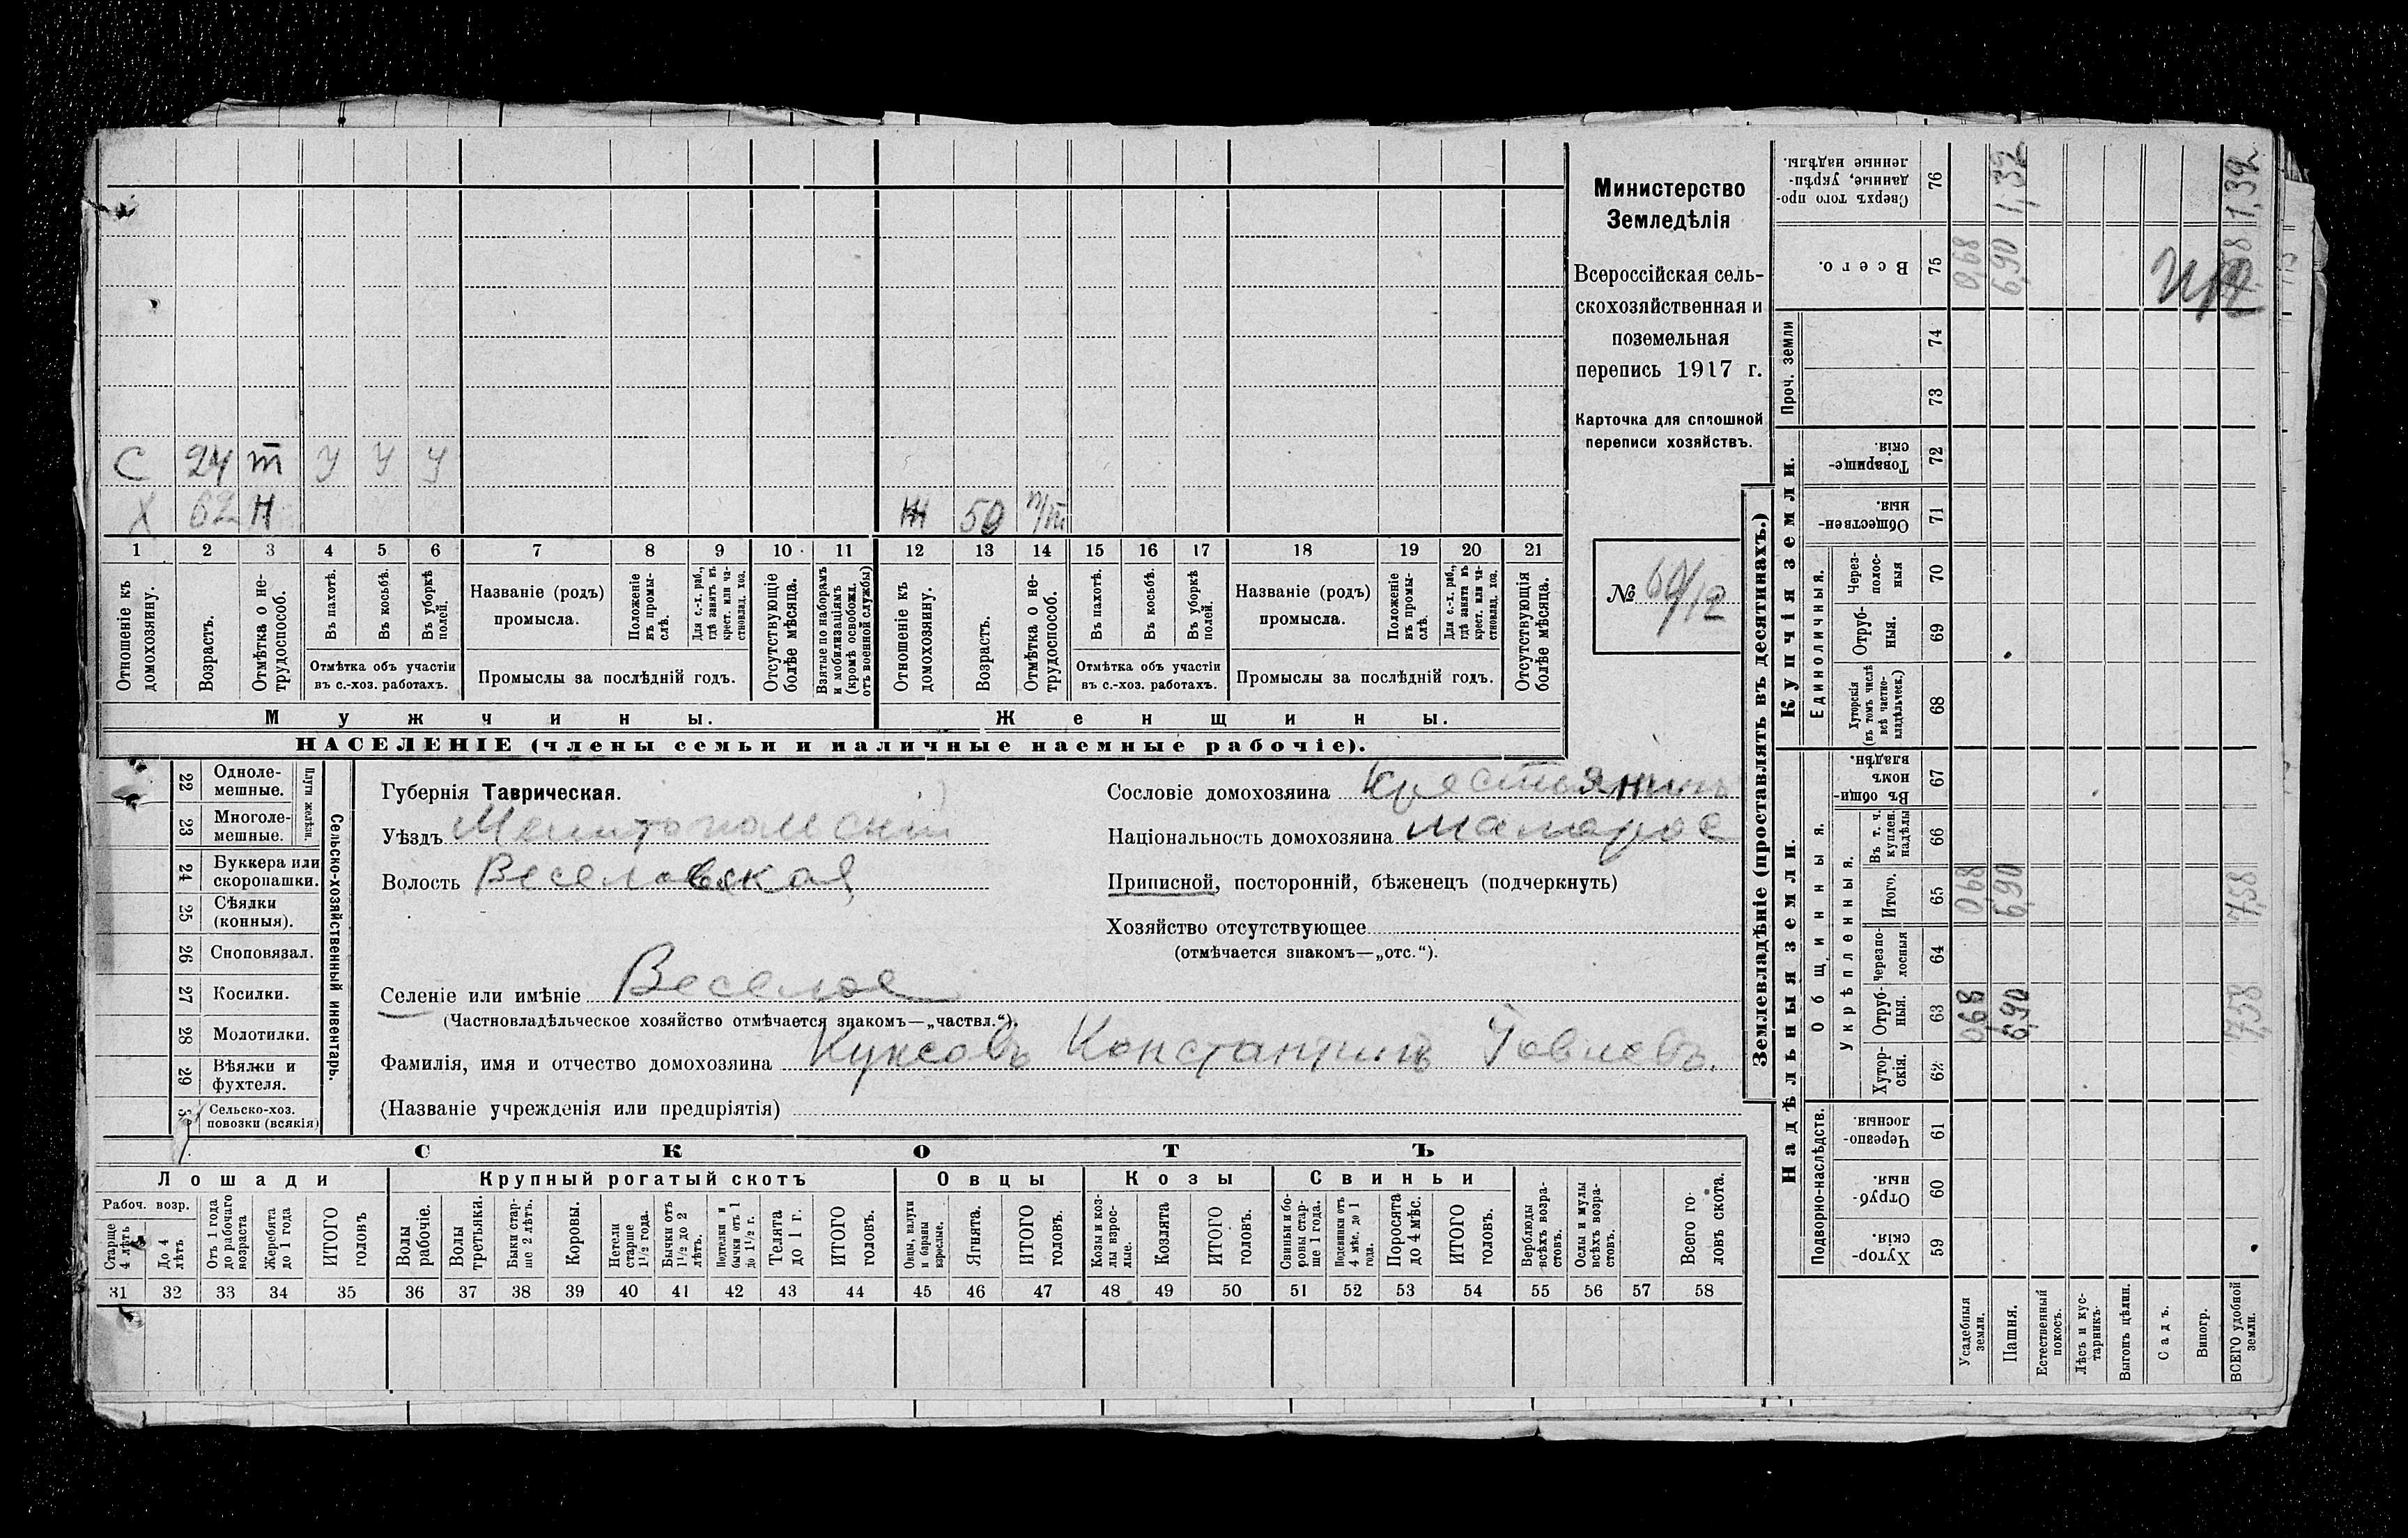 С 24 т У У У
Х 62 Н Ж 50 п/т
1 2 3 4 5 6 7 8 9 10 11 12 13 14 15 16 17 18 19 20 21
Отношеніе къ домохозяину.
Возрастъ.
Отмѣтка о не-трудоспособ.
Въ пахотѣ.
Въ косьбѣ.
Въ уборкѣ полей.
Отмѣтка объ участіи
въ с.-хоз. работахъ.
Названіе (родъ)
промысла.
Положеніе въ промы-слѣ.
Для с.-х. раб., гдѣ занятъ въ крест. или ча-стновлад. хоз.
Промыслы за послѣдній годъ.
Отсутствующіе болѣе мѣсяца.
Взятые по наборамъ и мобилизаціямъ (кромѣ освобожд. отъ военной службы)
Отношеніе къ домохозяину.
Возрастъ.
Отмѣтка о не-трудоспособ.
Въ пахотѣ.
Въ косьбѣ.
Въ уборкѣ полей.
Отмѣтка объ участіи
въ с.-хоз. работахъ.
Названіе (родъ)
промысла.
Положеніе въ промы-слѣ.
Для с.-х. раб., гдѣ занята въ крест. или ча-стновлад. хоз.
Промыслы за послѣдній годъ.
Отсутствующія болѣе мѣсяца.
Мужчины.
Женщины.
НАСЕЛЕНІЕ (члены семьи и наличные наемные рабочіе).
Министерство
Земледѣлія
Всероссійская сель-
скохозяйственная и
поземельная
перепись 1917 г.
Карточка для сплошной
переписи хозяйствъ.
№
22 Одноле-мешные.
23 Многоле-мешные.
Плуги желѣзн.
24 Буккера или скоропашки.
25 Сѣялки (конныя).
26 Сноповязал.
27 Косилки.
28 Молотилки.
29 Вѣялки и фухтеля.
Сельско-хоз. повозки (всякія)
Сельско-хозяйственный инвентарь.
Губернія Таврическая.
Уѣздъ Мелитопольскій
Волость Веселовская
Селеніе или имѣніе Веселое
(Частновладѣльческое хозяйство отмѣчается знакомъ—„частвл.“).
Фамилія, имя и отчество домохозяина Куксовъ Константинъ
(Названіе учрежденія или предпріятія)
Сословіе домохозяина Крестьянинъ
Національность домохозяина малорос
Приписной, посторонній, бѣженецъ (подчеркнуть)
Хозяйство отсутствующее
(отмѣчается знакомъ—„отс.“).
СКОТЪ
Лошади
Рабоч. возр.
Старше 4 лѣтъ
До 4 лѣтъ
Отъ 1 года до рабочаго возраста
Жеребята до 1 года
ИТОГО головъ
Крупный рогатый скотъ
Волы рабочіе.
Волы третьяки.
Быки стар-ше 2 лѣтъ.
Коровы.
Нетели старше 1½ года.
Бычки отъ 1½ до 2 лѣтъ.
Подтелки и бычки отъ 1 до 1½ г.
Телята до 1 г.
ИТОГО головъ.
Овцы
Овцы, валухи и бараны взрослые.
Ягнята.
ИТОГО головъ.
Козы
Козы и коз-лы взрос-лые.
Козлята
ИТОГО головъ.
Свиньи
Свиньи и бо-ровы стар-ше 1 года.
Подсвинки отъ 4 мѣс. до 1 года.
Поросята до 4 мѣс.
ИТОГО головъ.
Верблюды всѣхъ возра-стовъ.
Ослы и мулы всѣхъ возра-стовъ.
Всего го-ловъ скота.
31 32 33 34 35 36 37 38 39 40 41 42 43 44 45 46 47 48 49 50 51 52 53 54 55 56 57 58
Землевладѣніе (проставлять въ десятинахъ.)
Надѣльныя земли.
Купчія земли.
Проч. земли
Подворно-наслѣдств.
Общинныя.
Укрѣпленныя.
Единоличныя.
Сверхъ того про-данные, укрѣп-ленные надѣлы. 76 1,32 1,32
Всего. 75 0,68 6,90
74
73
Товарище-скія. 72
Обществен-ныя 71
Через-полос-ныя 70
Отруб-ныя. 69
Хуторскія (въ томъ числѣ всѣ частно-владѣльческ.) 68
Въ общи-номъ владѣн. 67
Въ т. ч. куплен. надѣлы 66
Итого. 65 0,68 6,90 7,58
Черезпо-лосныя 64
Отруб-ныя. 63 0,68 6,90 7,58
Хутор-скія. 62
Черезпо-лосныя 61
Отруб-ныя. 60
Хутор-скія. 59
Усадебныя земли.
Пашня.
Естественный покосъ.
Лѣсъ и кус-тарникъ.
Выгонъ цѣлин.
Садъ.
Виногр.
ВСЕГО удобной земли.